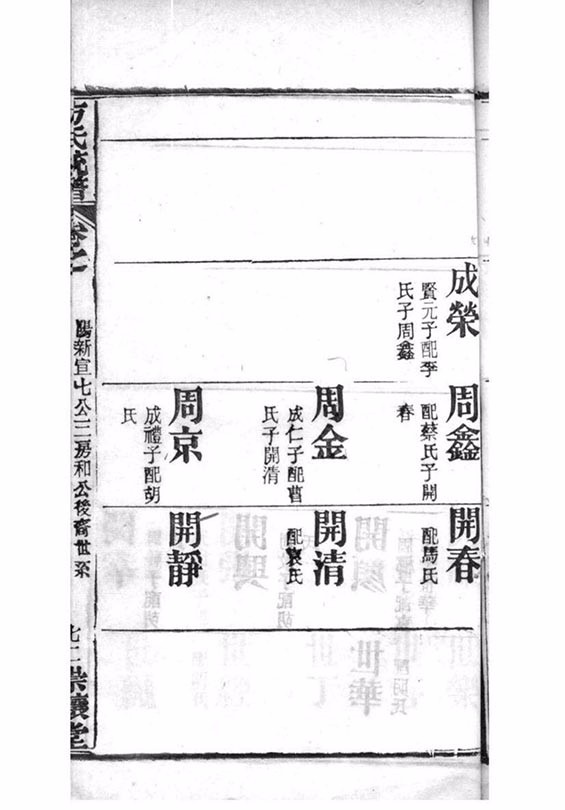 成榮
賢元子配李
氏子周鑫
周鑫
配蔡氏子開
春
開春
配馬氏
周金
成仁子配曹
氏子開清
開清
配袁氏
周京
成禮子配胡
氏
開靜
方氏統譜
卷之
陽新宣七公三房和公後裔世系
七二崇讓堂